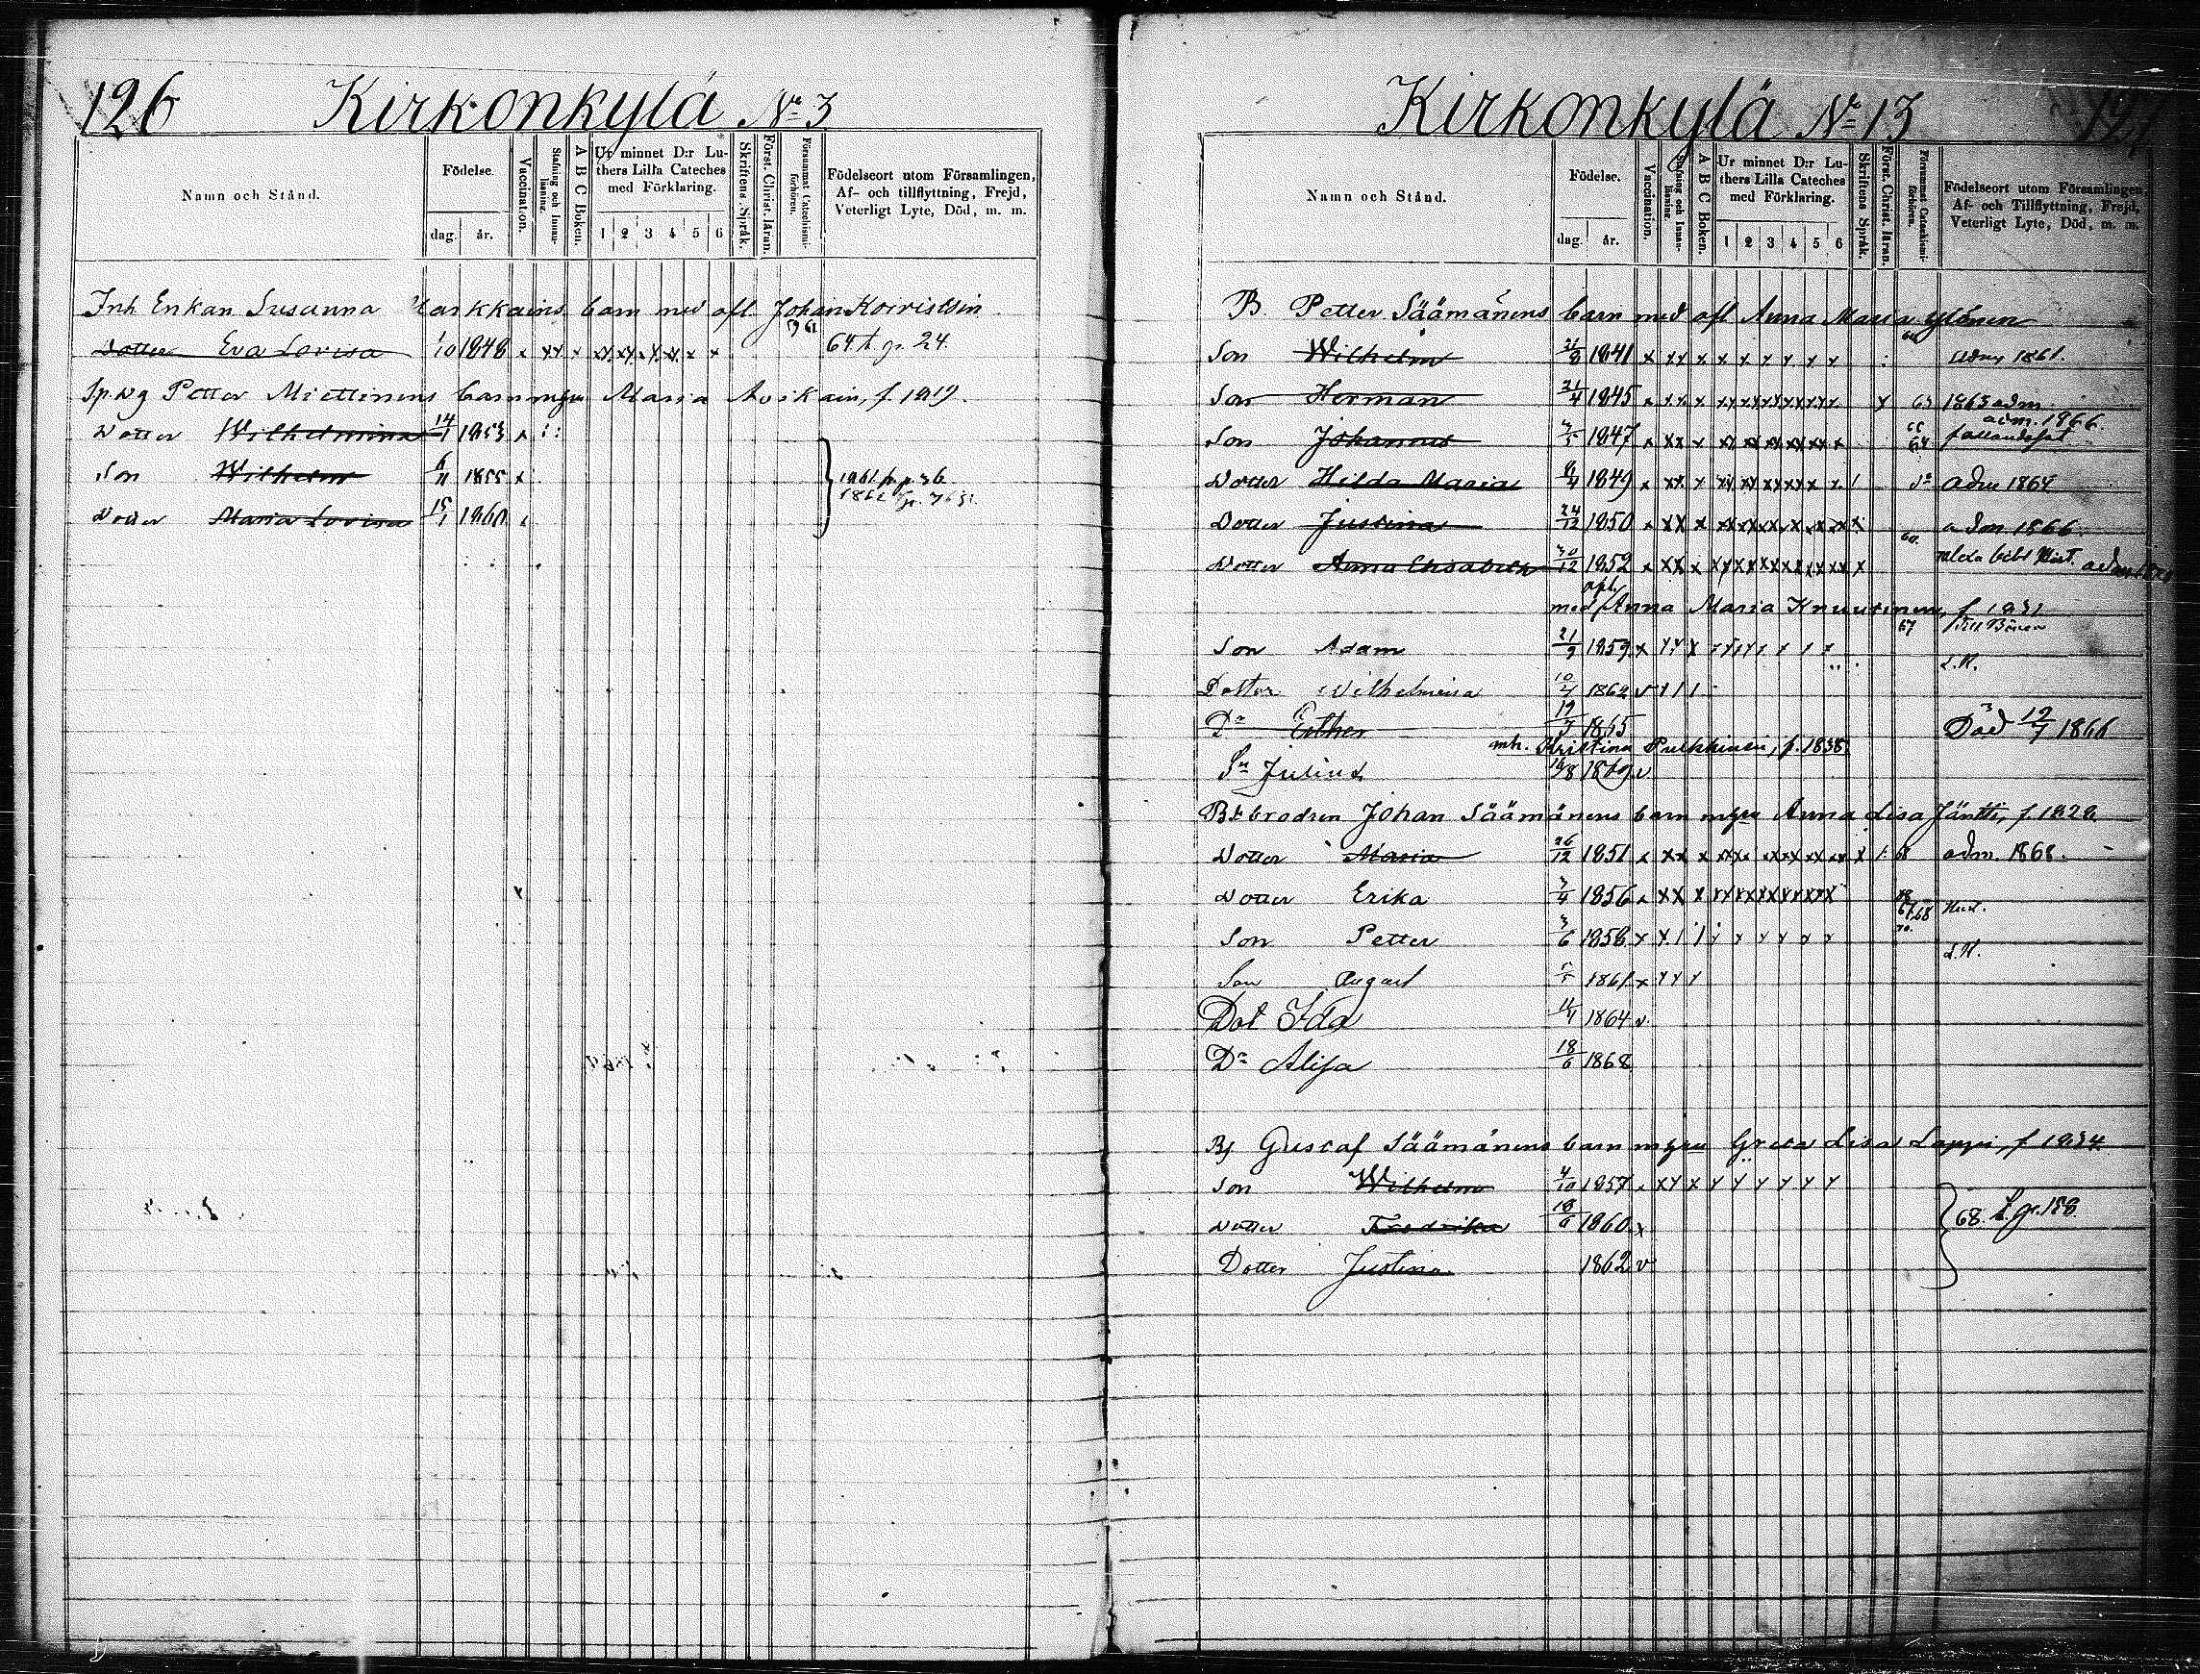 126 Kirkonkylä No 3
Namn och Stånd.
Födelse.
dag. år.
Vaccination.
Stafning och Innan-läsning.
A B C Boken.
Ur minnet D:r Lu-
thers Lilla Cateches
med Förklaring.
1 2 3 4 5 6
Skriftens Språk.
Först. Christ. läran.
Försummat Catechismi-förhören.
Födelseort utom Församlingen,
Af- och tillflyttning, Frejd,
Veterligt Lyte, Död, m. m.
Inh Enkan Susanna barn med afl. Johan Koivistoin
Dotter Eva Lovisa 1/10 1848 64 t. gr. 24.
Petter Miettinens barn Maria f. 1819.
Dotter Wilhelmina 14/1 1853
Son Wilhelm 6/11 1855
Dotter Maria Lovisa 15/1 1860
Kirkonkylä No 13 127
Namn och Stånd.
Födelse.
dag. år.
Vaccination.
Stafning och Innan-läsning.
A B C Boken.
Ur minnet D:r Lu-
thers Lilla Cateches
med Förklaring.
1 2 3 4 5 6
Skriftens Språk.
Först. Christ. läran.
Försummat Catechismi-förhören.
Födelseort utom Församlingen,
Af- och Tillflyttning, Frejd,
Veterligt Lyte, Död, m. m.
B. Petter Säämänens barn med afl Anna Maria Ylönen
Son Wilhelm 21/8 1841 1861.
Son Herman 21/4 1845 63 1863 adm
Son Johannes 1847 adm. 1866.
Dotter Hilda Maria 1849 adm 1864
Dotter Justina 24/12 1850 adm 1866.
Dotter Anna Elisabeth 30/12 1852
med afl. Anna Maria Knuutinen, f. 1831
Son Adam 21/9 1859 L.H.
Dotter Wilhelmina 10/4 1862
Do Esther 19/3 1865 Död 12/7 1866
mh. Kristina Pulkkinen, f. 1838.
Sn Julius 16/8 1869
Bs brodren Johan Säämänens barn m hru Anna Lisa Jäntti, f. 1828.
Dotter Maria 26/12 1851 68 adm. 1868.
Dotter Erika 3/4 1856 67.68
Son Petter 3/6 1858 L.H.
Son August 1861
Dot Ida 1864
Do Alisa 18/6 1868
Bs. Gustaf Säämänens barn m hru Greta Lisa Lappi, f 1834
Son Wilhelm 4/10 1857
Dotter Fredrika 18/6 1860 68. t. gr. 158.
Dotter Justina 1862